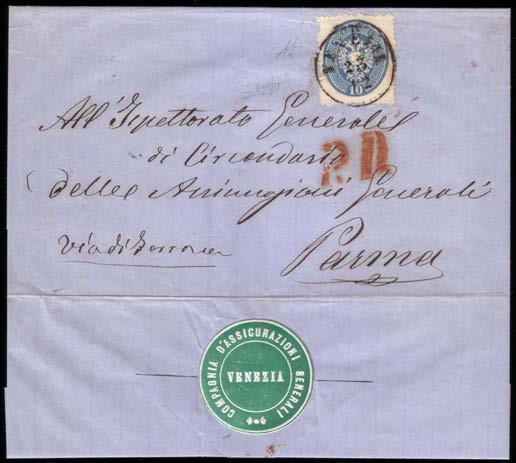 VENEZIA
23
12
10
All'Ispettorato Generale
di Circondario
P.D.
delle Assicurazioni Generali
Via di
Parma
COMPAGNIA D'ASSICURAZIONI GENERALI
VENEZIA